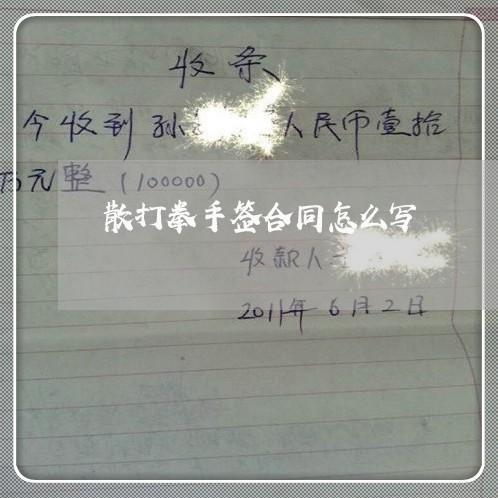 收条
今收到孙 人民币壹拾
万元整（100000）
散打拳手签合同怎么写
收款人
2011年6月2日